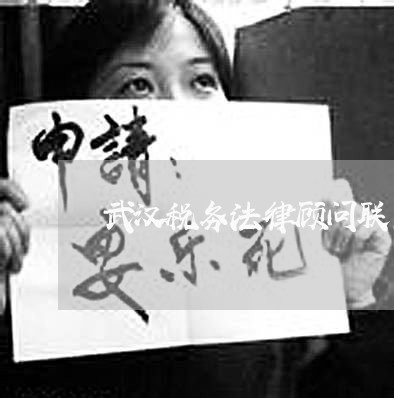 申請：
武汉税务法律顾问联
安乐死